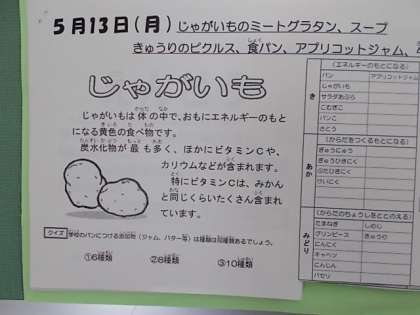 5月13日(月)じゃがいものミートグラタン、スープ
きゅうりのピクルス、食パン、アプリコットジャム、
じゃがいも
じゃがいもは体の中で、おもにエネルギーのもと
になる黄色の食べ物です。
炭水化物が最も多く、ほかにビタミンCや、
カリウムなどが含まれます。
特にビタミンCは、みかん
と同じくらいたくさん含まれ
ています。
クイズ 学校のパンにつける添加物(ジャム、バター等)は種類は何種類あるでしょう。
①6種類 ②8種類 ③10種類
き
(エネルギーのもとになる)
パン アプリコットジャム
じゃがいも
サラダあぶら
こむぎこ
パンこ
さとう
あか
(からだをつくるもとになる)
ぎゅうにゅう
ぎゅうひきにく
ぶたひきにく
みどり
(からだのちょうしをととのえる)
たまねぎ しめじ
グリンピース きゅうり
にんにく
キャベツ
にんじん
パセリ